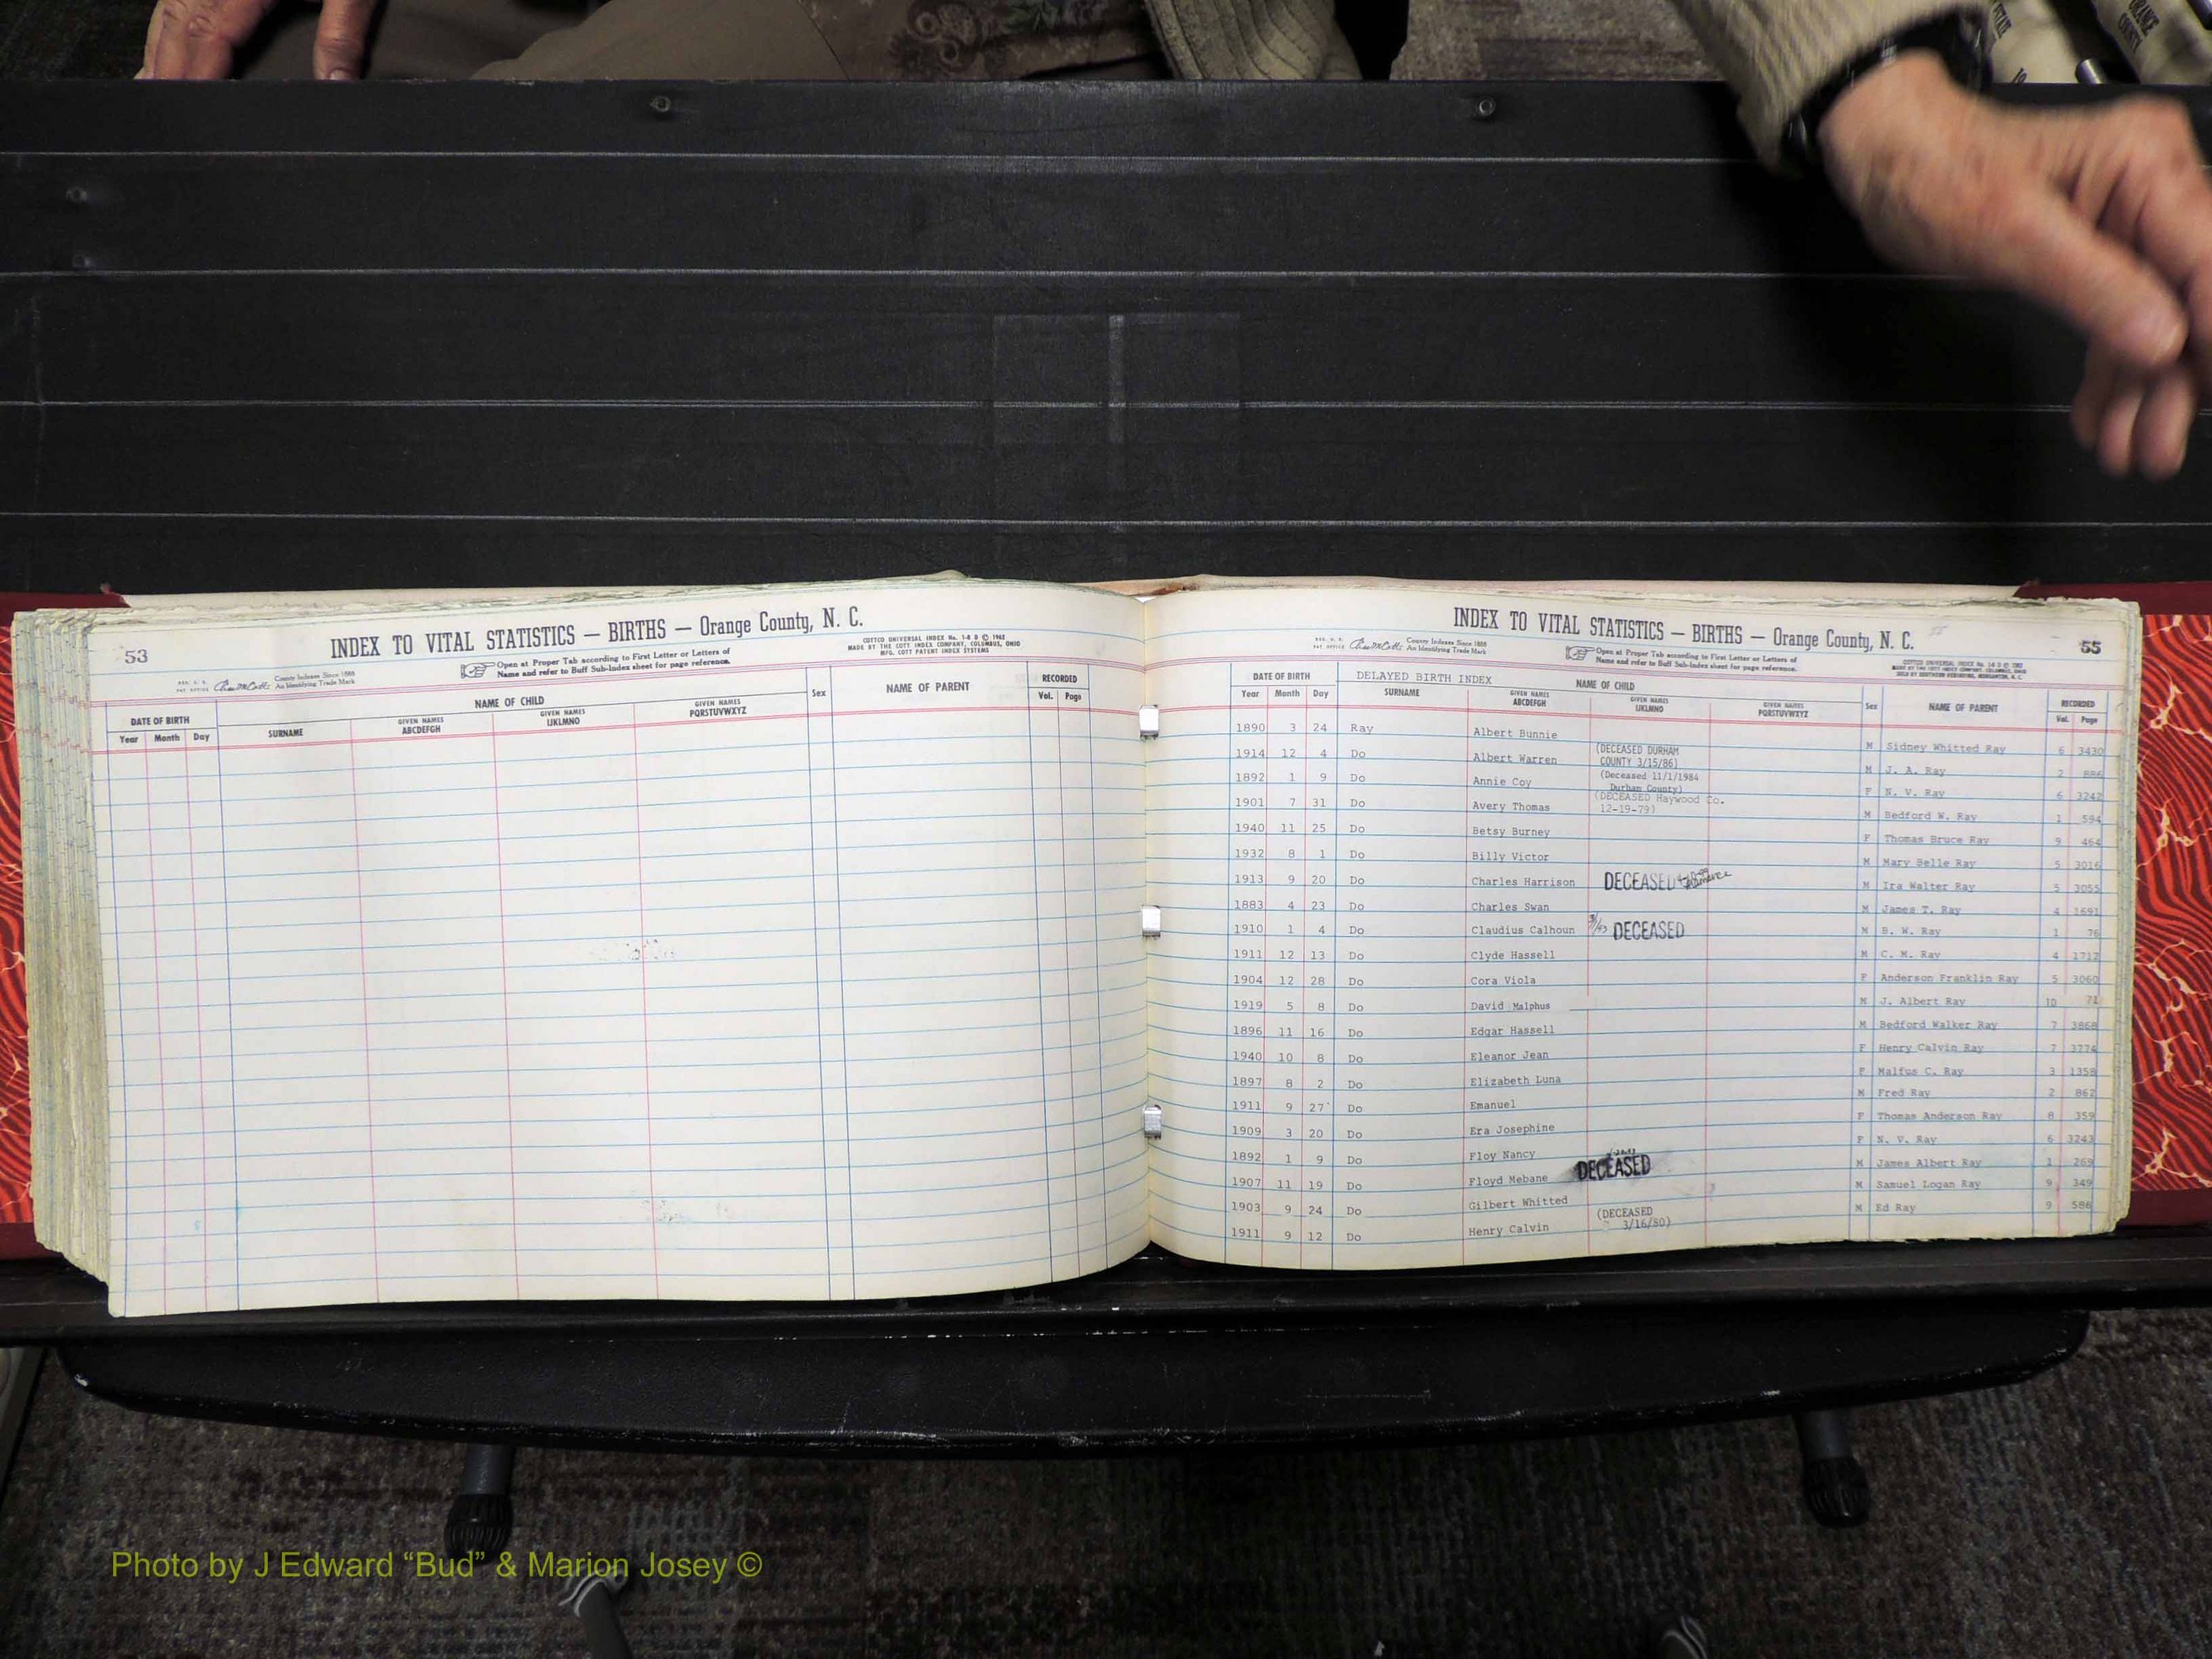 ORANGE COUNTY
53
INDEX TO VITAL STATISTICS — BIRTHS — Orange County, N. C.
COTTCO UNIVERSAL INDEX No. 1-8 D © 1962
MADE BY THE COTT INDEX COMPANY, COLUMBUS, OHIO
MFG. COTT PATENT INDEX SYSTEMS
County Indexes Since 1888
An Identifying Trade Mark
Open at Proper Tab according to First Letter or Letters of
Name and refer to Buff Sub-Index sheet for page reference.
DATE OF BIRTH NAME OF CHILD Sex NAME OF PARENT RECORDED
Year Month Day SURNAME GIVEN NAMES ABCDEFGH GIVEN NAMES IJKLMNO GIVEN NAMES PQRSTUVWXYZ Vol. Page
INDEX TO VITAL STATISTICS — BIRTHS — Orange County, N. C.
55
County Indexes Since 1888
An Identifying Trade Mark
Open at Proper Tab according to First Letter or Letters of
Name and refer to Buff Sub-Index sheet for page reference.
DATE OF BIRTH DELAYED BIRTH INDEX NAME OF CHILD Sex NAME OF PARENT RECORDED
Year Month Day SURNAME GIVEN NAMES ABCDEFGH GIVEN NAMES IJKLMNO GIVEN NAMES PQRSTUVWXYZ Vol. Page
1890 3 24 Ray Albert Bunnie M Sidney Whitted Ray 6 3430
1914 12 4 Do Albert Warren (DECEASED DURHAM COUNTY 3/15/86) M J. A. Ray 2 886
1892 1 9 Do Annie Coy (Deceased 11/1/1984 Durham County) F N. V. Ray 6 3242
1901 7 31 Do Avery Thomas (DECEASED Haywood Co. 12-19-79) M Bedford W. Ray 1 594
1940 11 25 Do Betsy Burney F Thomas Bruce Ray 9 464
1932 8 1 Do Billy Victor M Mary Belle Ray 5 3016
1913 9 20 Do Charles Harrison DECEASED M Ira Walter Ray 5 3055
1883 4 23 Do Charles Swan M James T. Ray 4 1691
1910 1 4 Do Claudius Calhoun DECEASED M B. W. Ray 1 76
1911 12 13 Do Clyde Hassell M C. M. Ray 4 1712
1904 12 28 Do Cora Viola F Anderson Franklin Ray 5 3060
1919 5 8 Do David Malphus M J. Albert Ray 10 71
1896 11 16 Do Edgar Hassell M Bedford Walker Ray 7 3868
1940 10 8 Do Eleanor Jean F Henry Calvin Ray 7 3774
1897 8 2 Do Elizabeth Luna F Malfus C. Ray 3 1358
1911 9 27 Do Emanuel M Fred Ray 2 862
1909 3 20 Do Era Josephine F Thomas Anderson Ray 8 359
1892 1 9 Do Floy Nancy F N. V. Ray 6 3243
1907 11 19 Do Floyd Mebane DECEASED M James Albert Ray 1 269
1903 9 24 Do Gilbert Whitted M Samuel Logan Ray 9 349
1911 9 12 Do Henry Calvin (DECEASED 3/16/80) M Ed Ray 9 586
Photo by J Edward “Bud” & Marion Josey ©